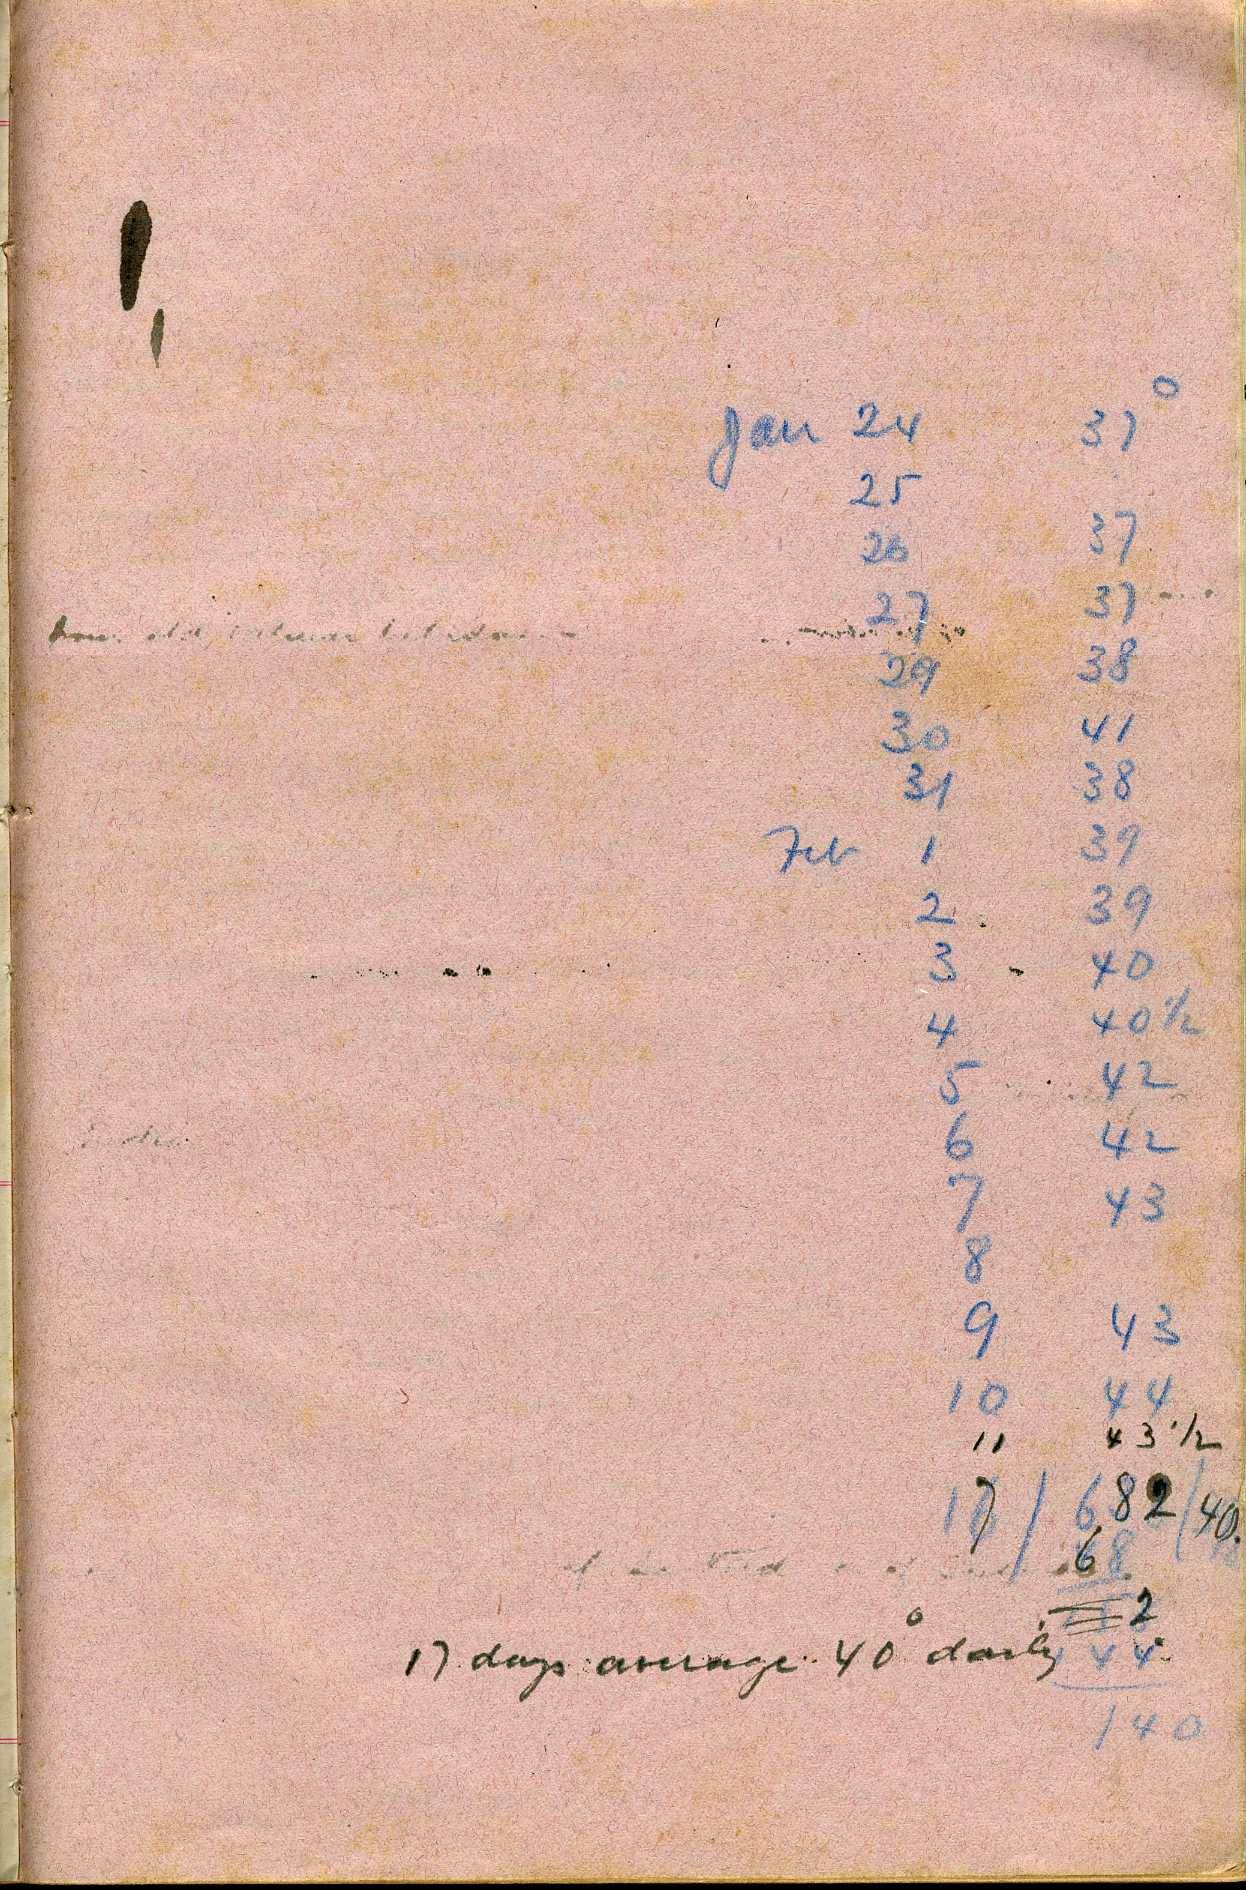 Jan 24 37°
25
26 37
27 37
29 38
30 41
31 38
Feb 1 39
2 39
3 40
4 40 1/2
5 42
6 42
7 43
8
9 43
10 44
11 43 1/2
17 / 682 / 40.
68
2
17 days average 40° daily
144
140